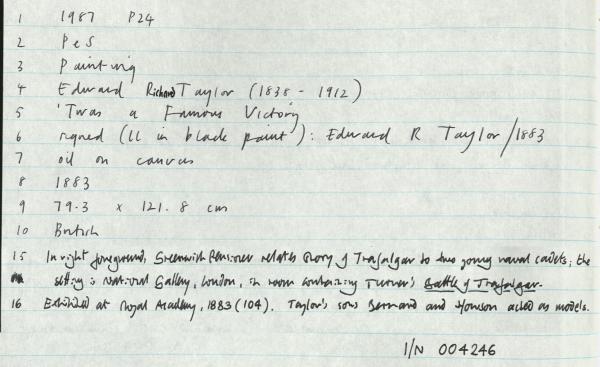 1 1987 P24
2 PeS
3 Painting
4 Edward Richard Taylor (1838 - 1912)
5 'Twas a Famous Victory
6 signed (LL in black paint): Edward R Taylor/1883
7 oil on canvas
8 1883
9 79.3 x 121.8 cm
10 British
15 In right foreground, Greenwich Pensioner relates story of Trafalgar to two young naval cadets; the
setting is National Gallery, London, in room containing Turner's Battle of Trafalgar.
16 Exhibited at Royal Academy, 1883 (104). Taylor's sons Bernard and Howson acted as models.
I/N 004246